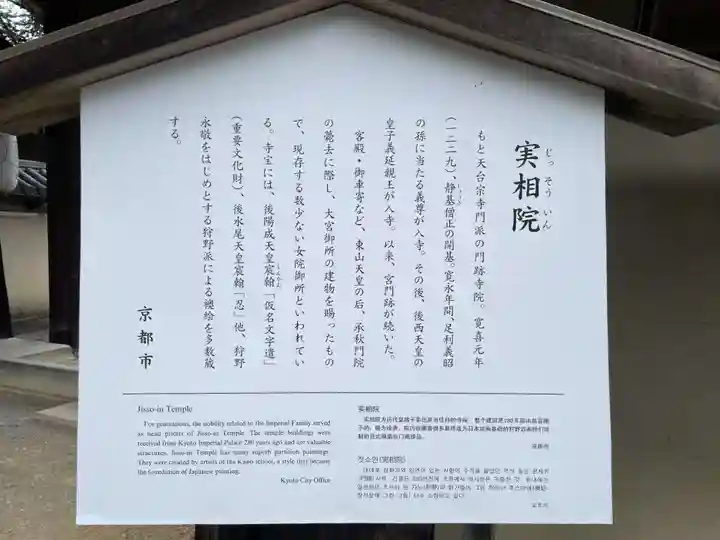 実相院
じっそういん
もと天台宗寺門派の門跡寺院。寛喜元年
(一二二九)、静基僧正の開基。寛永年間、足利義昭
の孫に当たる義尊が入寺。その後、後西天皇の
皇子義延親王が入寺。以来、宮門跡が続いた。
客殿・御車寄など、東山天皇の后、承秋門院
の薨去に際し、大宮御所の建物を賜ったもの
で、現存する数少ない女院御所といわれてい
る。寺宝には、後陽成天皇宸翰「仮名文字遣」
(重要文化財)、後水尾天皇宸翰「忍」他、狩野
永敬をはじめとする狩野派による襖絵を多数蔵
する。
京都市
Jisso-in Temple
For generations, the nobility related to the Imperial Family served
as head priests of Jisso-in Temple. The temple buildings were
received from Kyoto Imperial Palace 280 years ago and are valuable
structures. Jisso-in Temple has many superb partition paintings.
They were created by artists of the Kano school, a style that became
the foundation of Japanese painting.
Kyoto City Office
实相院
京都市
짓소인(実相院)
교토시